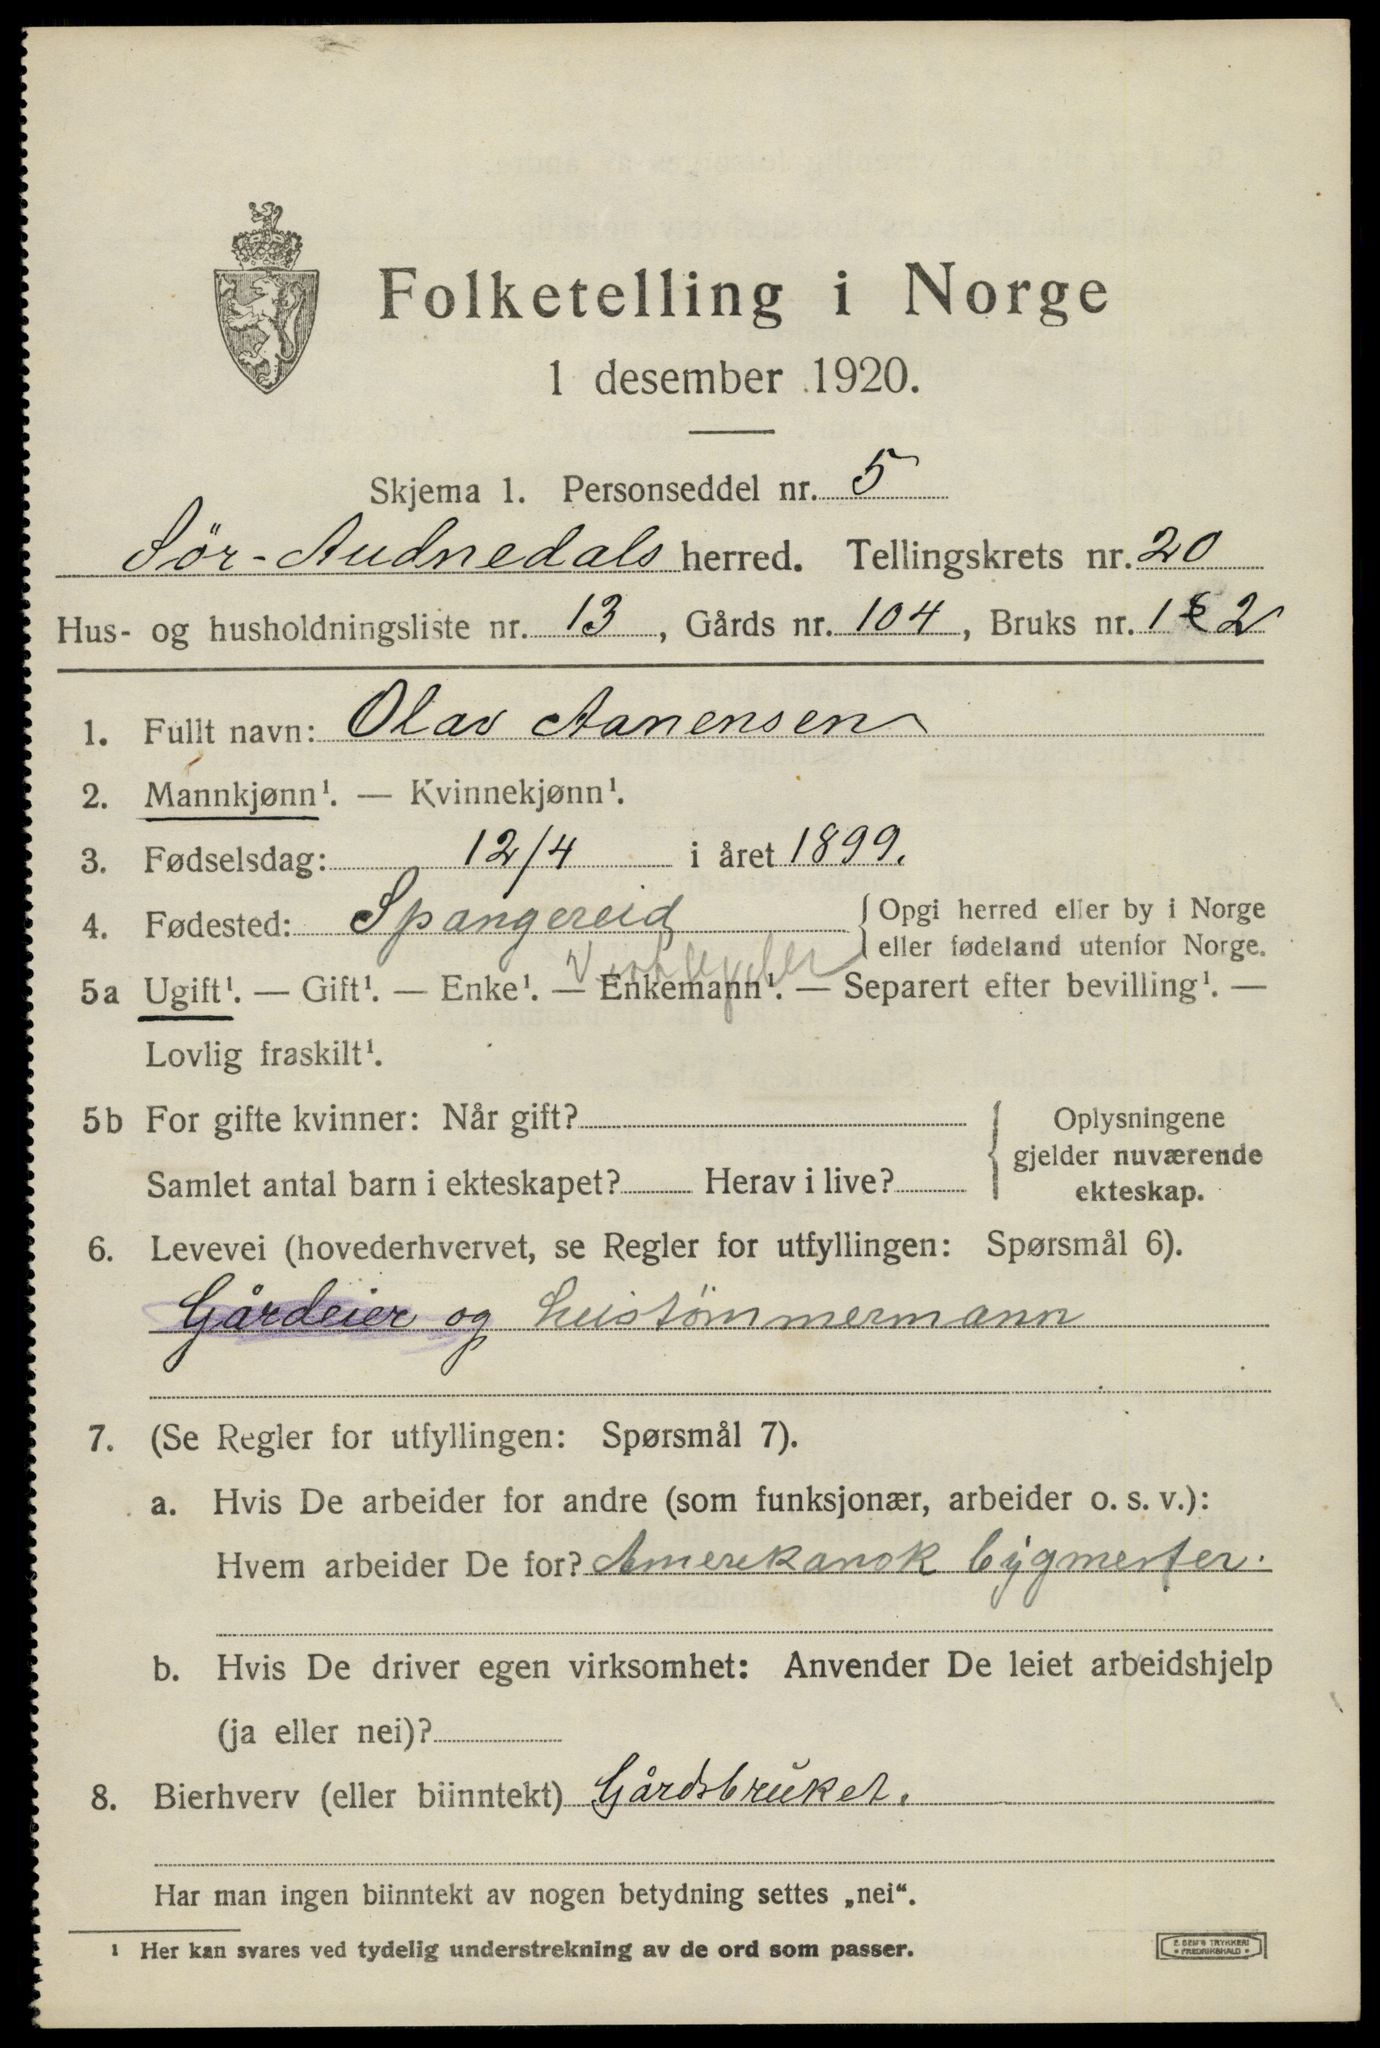 Folketelling i Norge
1 desember 1920.
Skjema 1. Personseddel nr. 5
Sör-Audnedals herred. Tellingskrets nr. 20
Hus- og husholdningsliste nr. 13, Gårds nr. 104, Bruks nr. 1 & 2
1. Fullt navn: Olav Aanensen
2. Mannkjønn¹. — Kvinnekjønn¹.
3. Fødselsdag: 12/4 i året 1899.
4. Fødested: Spangereid
{Opgi herred eller by i Norge
eller fødeland utenfor Norge.
5a Ugift¹. — Gift¹. — Enke¹. — Enkemann¹. — Separert efter bevilling¹. —
Lovlig fraskilt¹.
5b For gifte kvinner: Når gift?
Samlet antal barn i ekteskapet? Herav i live?
{Oplysningene
gjelder nuværende
ekteskap.
6. Levevei (hovederhvervet, se Regler for utfyllingen: Spørsmål 6).
Gårdeier og huistömmermann
7. (Se Regler for utfyllingen: Spørsmål 7).
a. Hvis De arbeider for andre (som funksjonær, arbeider o. s. v.):
Hvem arbeider De for? Amerekansk bygmester.
b. Hvis De driver egen virksomhet: Anvender De leiet arbeidshjelp
(ja eller nei)?
8. Bierhverv (eller biinntekt) Gårdsbruket.
Har man ingen biinntekt av nogen betydning settes „nei".
¹ Her kan svares ved tydelig understrekning av de ord som passer.
E. SEM'S TRYKKERI
• FREDRIKSHALD •